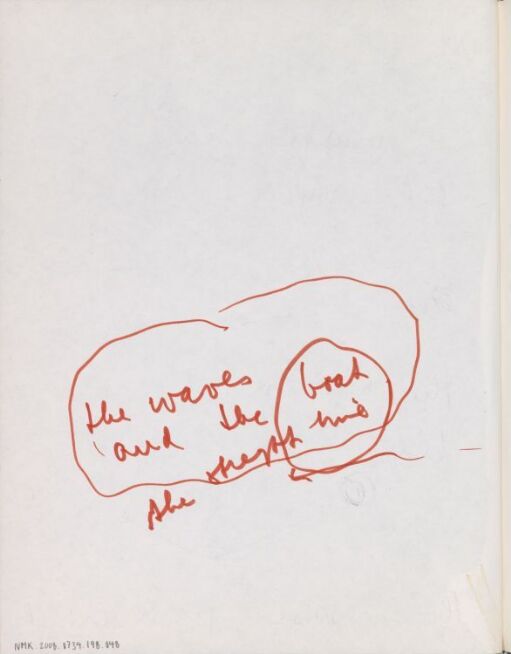 the waves
and the boat
the
NMK.2008.0734.198.048